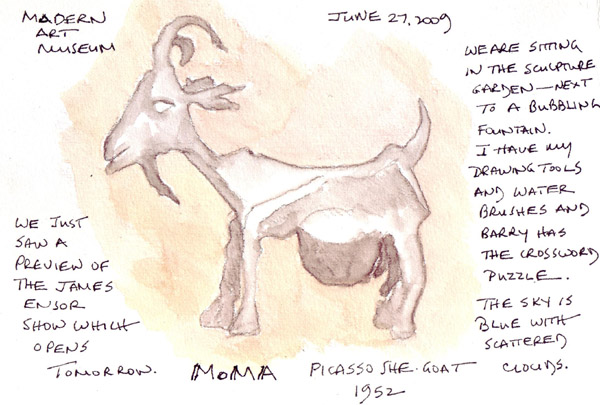 MADERN
ART
MUSEUM
JUNE 27, 2009
WE ARE SITTING
IN THE SCULPTURE
GARDEN—NEXT
TO A BUBBLING
FOUNTAIN.
I HAVE MY
DRAWING TOOLS
AND WATER
BRUSHES AND
BARRY HAS
THE CROSSWORD
PUZZLE.
THE SKY IS
BLUE WITH
SCATTERED
CLOUDS.
WE JUST
SAW A
PREVIEW OF
THE JAMES
ENSOR
SHOW WHICH
OPENS
TOMORROW.
MOMA
PICASSO SHE-GOAT
1952